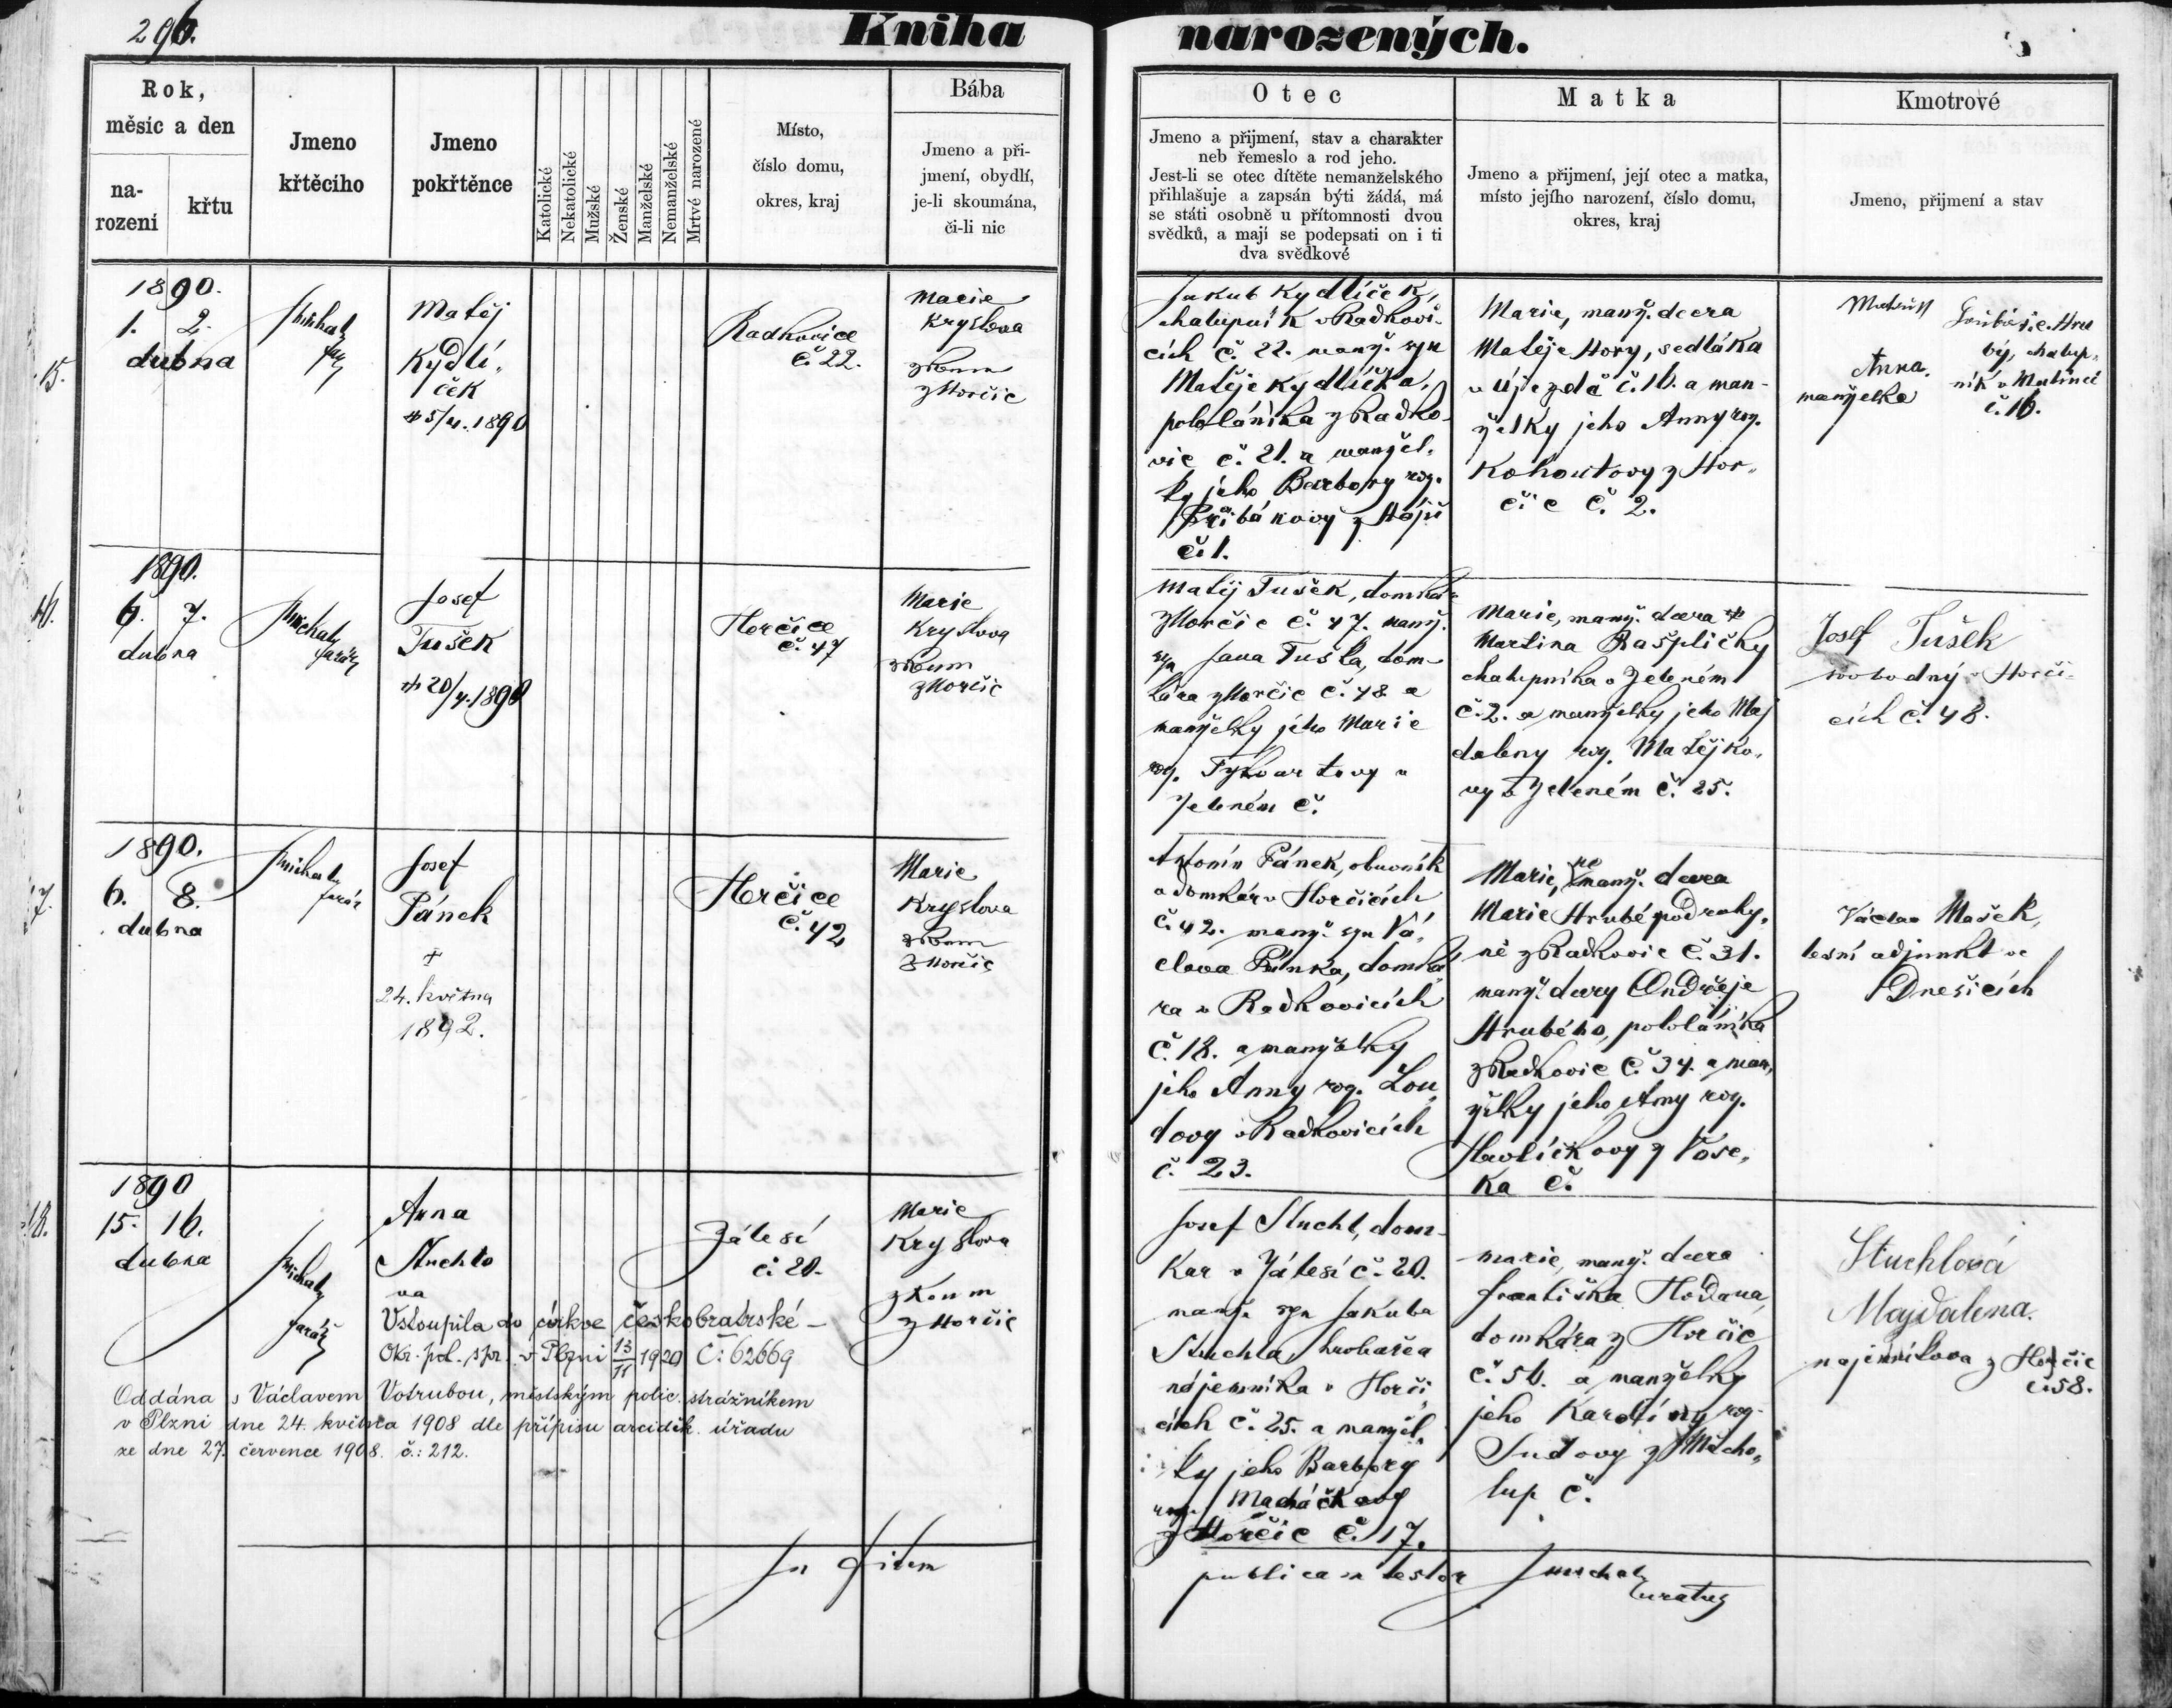 296.
Kniha narozených.
Rok,
měsíc a den
na-
rození
křtu
Jmeno
křtěcího
Jmeno
pokřtěnce
Katolické
Nekatolické
Mužské
Ženské
Manželské
Nemanželské
Mrtvé narozené
Místo,
číslo domu,
okres, kraj
Bába
Jmeno a při-
jmení, obydlí,
je-li skoumána,
či-li nic
Otec
Jmeno a přijmení, stav a charakter
neb řemeslo a rod jeho.
Jest-li se otec dítěte nemanželského
přihlašuje a zapsán býti žádá, má
se státi osobně u přítomnosti dvou
svědků, a mají se podepsati on i ti
dva svědkové
Matka
Jmeno a přijmení, její otec a matka,
místo jejího narození, číslo domu,
okres, kraj
Kmotrové
Jmeno, přijmení a stav
15.
1890.
1. 2.
dubna
Matěj
Kydlí„
ček
5/4. 1890
Radkovice
č. 22.
Marie
Kryslova
zkoum
z Horčic
Jakub Kydlíček,
chalupník v Radkovi-
cích č. 22. manž. syn
Matěje Kydlíčka,
pololáníka z Radko-
vic č. 21. a manžel„
ky jeho Barbory roz.
č. 1.
Marie, manž. dcera
Matěje Hory, sedláka
v Újezdě č. 16. a man-
želky jeho Anny roz.
Kohoutovy z Hor„
čic č. 2.
Anna
manželka
Hru
bý, chalup„
ník v
č. 16.
16.
1890.
6. 7.
dubna
farář
Josef
Tušek
20/4. 1890
Horčice
č. 47
Marie
Kryslova
zkoum
z Horčic
Matěj Tušek, domkář
z Horčic č. 47. manž.
syn Jana Tuška, dom-
kára z Horčic č. 48 a
manželky jeho Marie
roz. v
Zeleném č.
Marie, manž. dcera
Martina Rašpličky
chalupníka v Zeleném
č. 2. a manželky jeho Maj
daleny roz. Matějko„
vy v Zeleném č. 25.
Josef Tušek
svobodný v Horči-
cích č. 48.
17.
1890.
6. 8.
dubna
farář
Josef
Pánek
+
24. května
1892.
Horčice
č. 42
Marie
Kryslova
zkoum
z Horčic
Antonín Pánek, obuvník
a domkář v Horčicích
č. 42. manž. syn Vá„
clava Pánka, domká
ra v Radkovicích
č. 18. a manželky
jeho Anny roz. Lou„
dovy v Radkovicích
č. 23.
Marie, nemanž. dcera
Marie Hrubé podruhy„
ně z Radkovic č. 31.
manž. dcery Ondřeje
Hrubého, pololáníka
z Radkovic č. 34. a man„
želky jeho Anny roz.
Havlíčkovy z Vose„
ka č.
Václav Mašek,
lesní adjunkt ve
Dnešicích
18.
1890
15. 16.
dubna
farář
Anna
Stuchlo
va
Zálesí
č. 20.
Marie
Kryslova
zkoum
z Horčic
Vstoupila do církve českobratrské –
Okr. pol. spr. v Plzni 13/11 1920 Č: 62669
Oddána s Václavem Votrubou, městským polic. strážníkem
v Plzni dne 24. května 1908 dle přípisu arciděk. úřadu
ze dne 27. července 1908. č.: 212.
Josef Stuchl, dom-
kar v Zálesí č. 20.
manž. syn Jakuba
Stuchla, hrobařea
nájemníka v Horči„
cích č. 25. a manžel„
ky jeho Barbory
roz. Macháčkovy
z Horčic č. 17.
Marie, manž. dcera
Františka Hodana,
domkára z Horčic
č. 56. a manželky
jeho Karolíny roz.
Sudovy z Měcho„
lup č.
Stuchlová
Majdalena.
nájemníkova z Horčic
č. 58.
In fidem
publicam testor
curatus